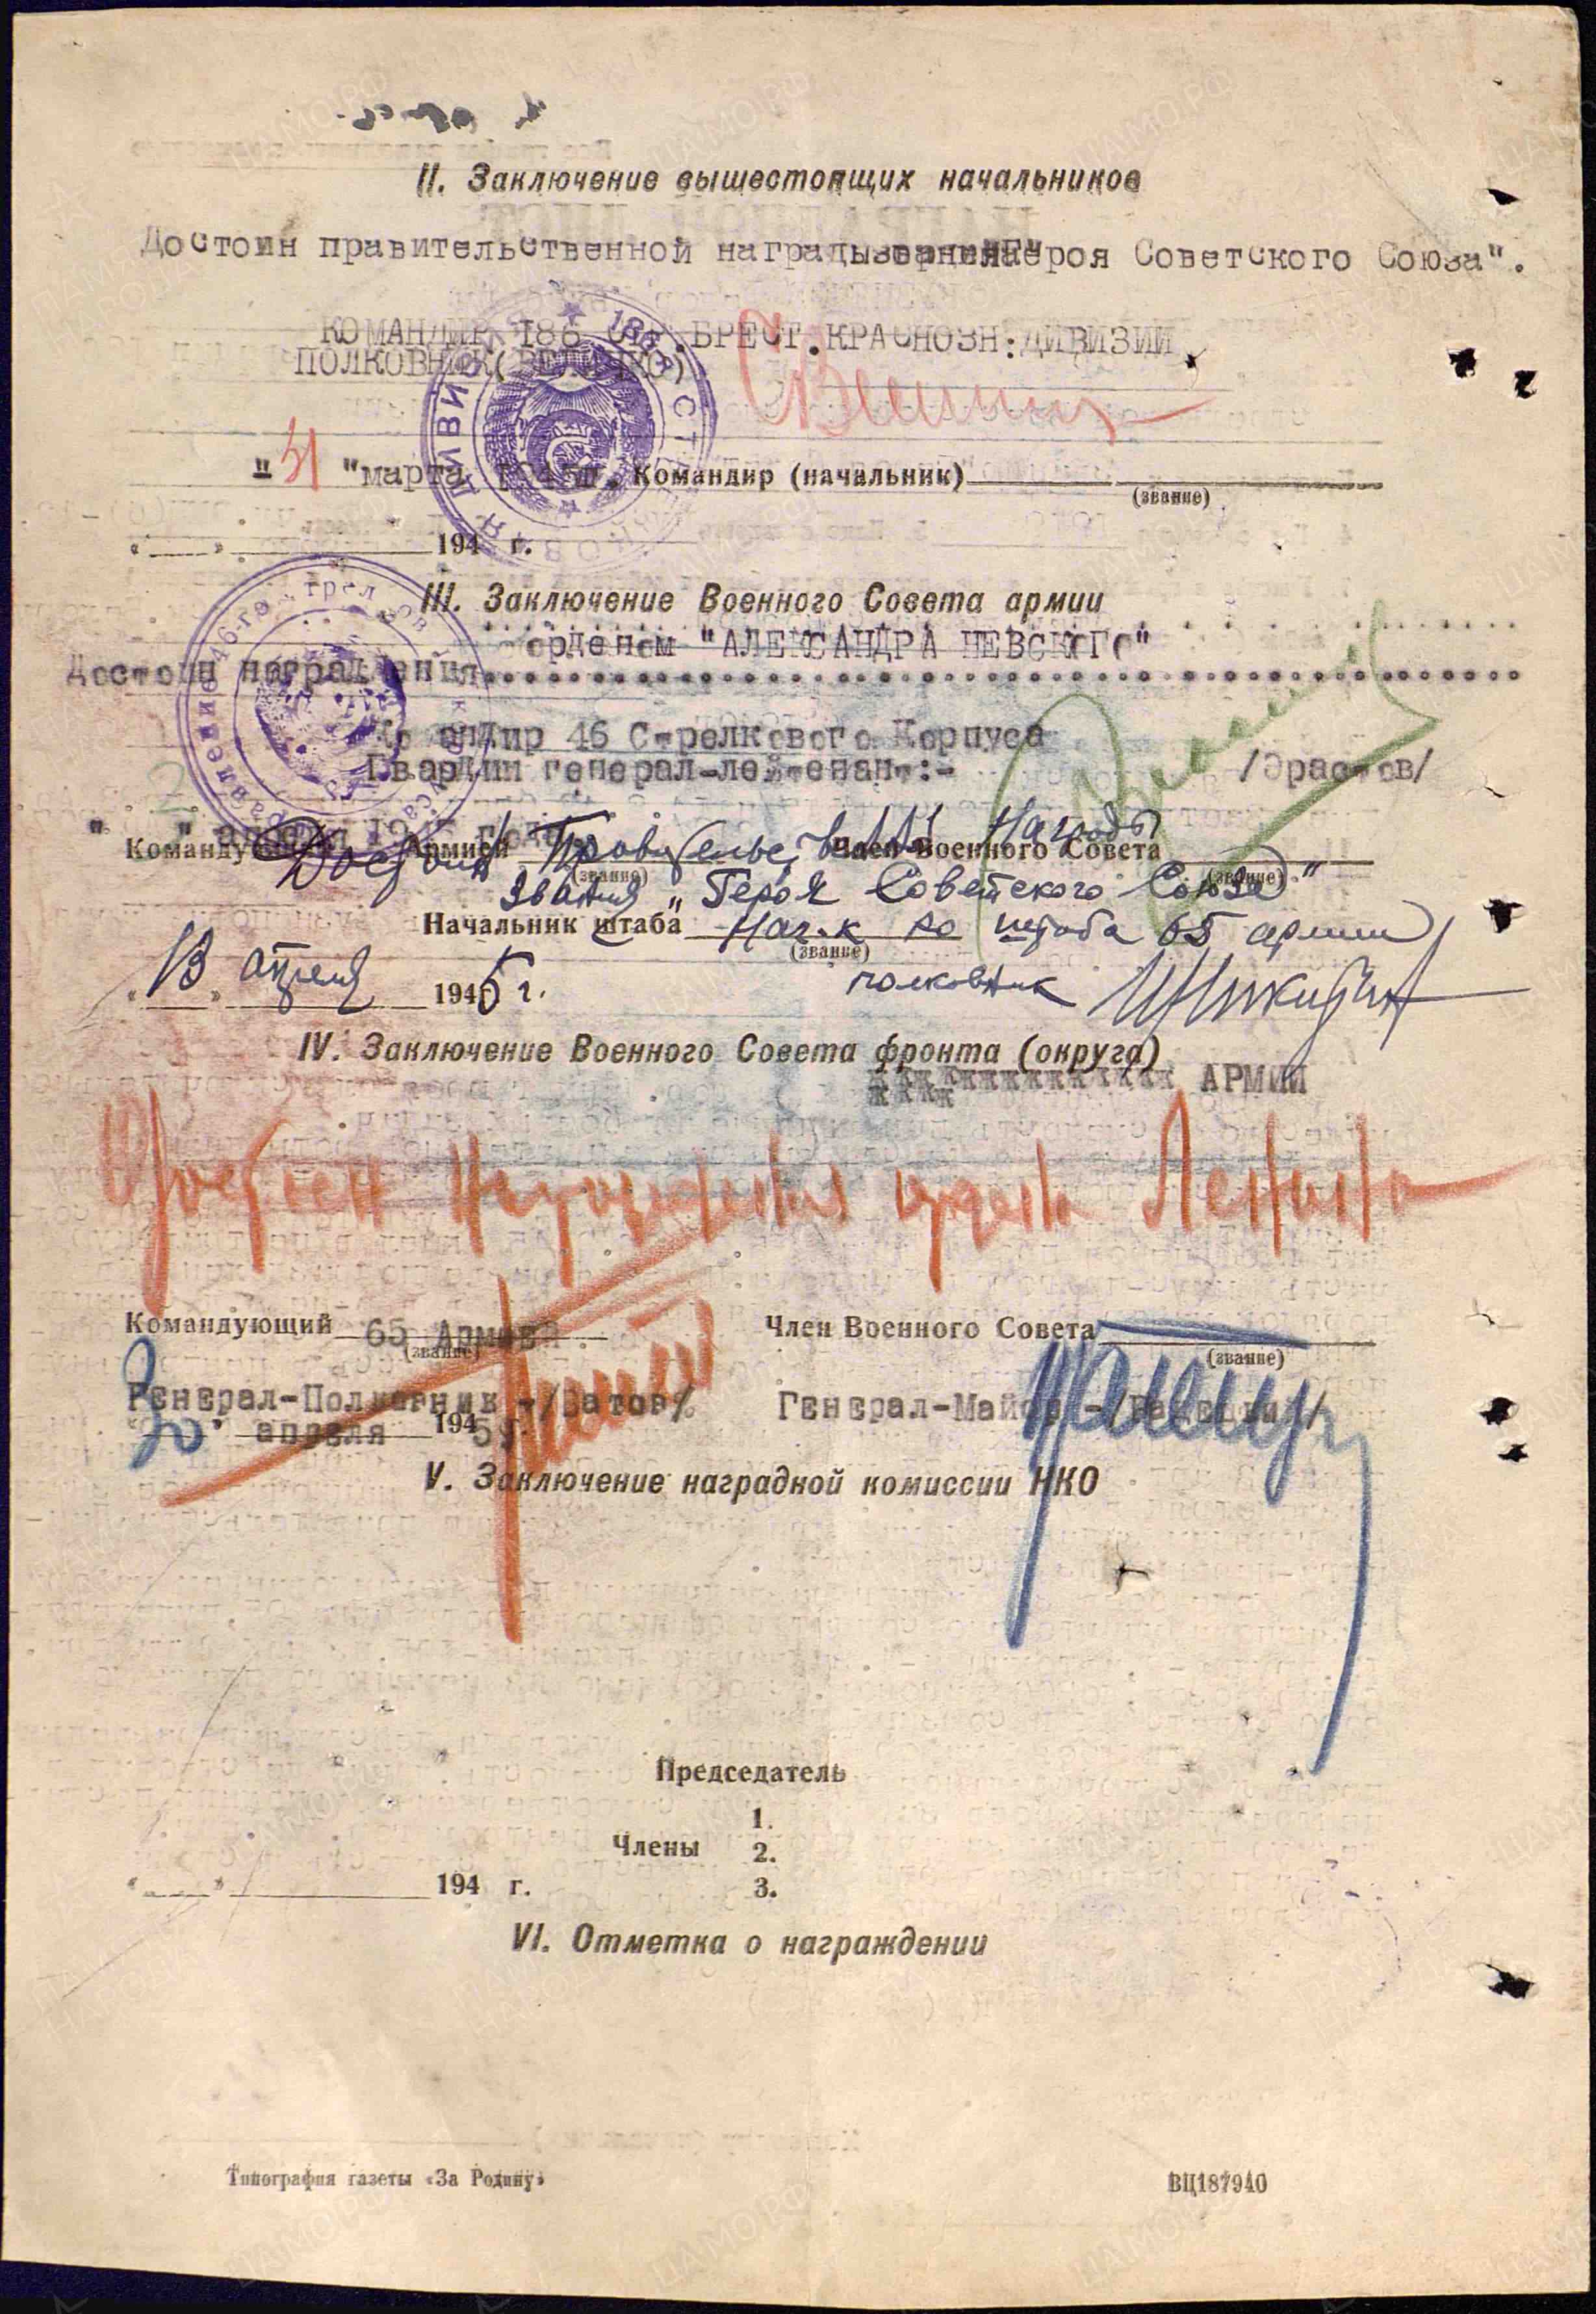 II. Заключение вышестоящих начальников
Достоин правительственной награды звания "Героя Советского Союза".
КОМАНДИР 186 СТР. БРЕСТ. КРАСНОЗН. ДИВИЗИИ
ПОЛКОВНИК (ВЕЛИЧКО)
"31 "марта 1945г. Командир (начальник)
(звание)
« » 194 г.
III. Заключение Военного Совета армии
орденом "АЛЕКСАНДРА НЕВСКОГО"
Достоин награждения
Командир 46 Стрелкового Корпуса
Гвардии генерал-лейтенант:- /Эрастов/
2
" " апреля 1945 года
Командующий Армией Член Военного Совета
Достоин Правительственной Награды
(звание) (звание)
звания „Героя Советского Союза"
Начальник штаба Нач-к ло штаба 65 армии
(звание)
полковник
„13" апреля 1945 г.
IV. Заключение Военного Совета фронта (округа)
АРМИИ
Достоен награждения орден Ленина
Командующий 65 Армией Член Военного Совета
(звание) (звание)
Генерал-Полковник -/Батов/ Генерал-Майор -/Радецкий/
"20" апреля 1945г.
V. Заключение наградной комиссии НКО
Председатель
1.
Члены 2.
« » 194 г. 3.
VI. Отметка о награждении
Типография газеты «За Родину» ВЦ187940